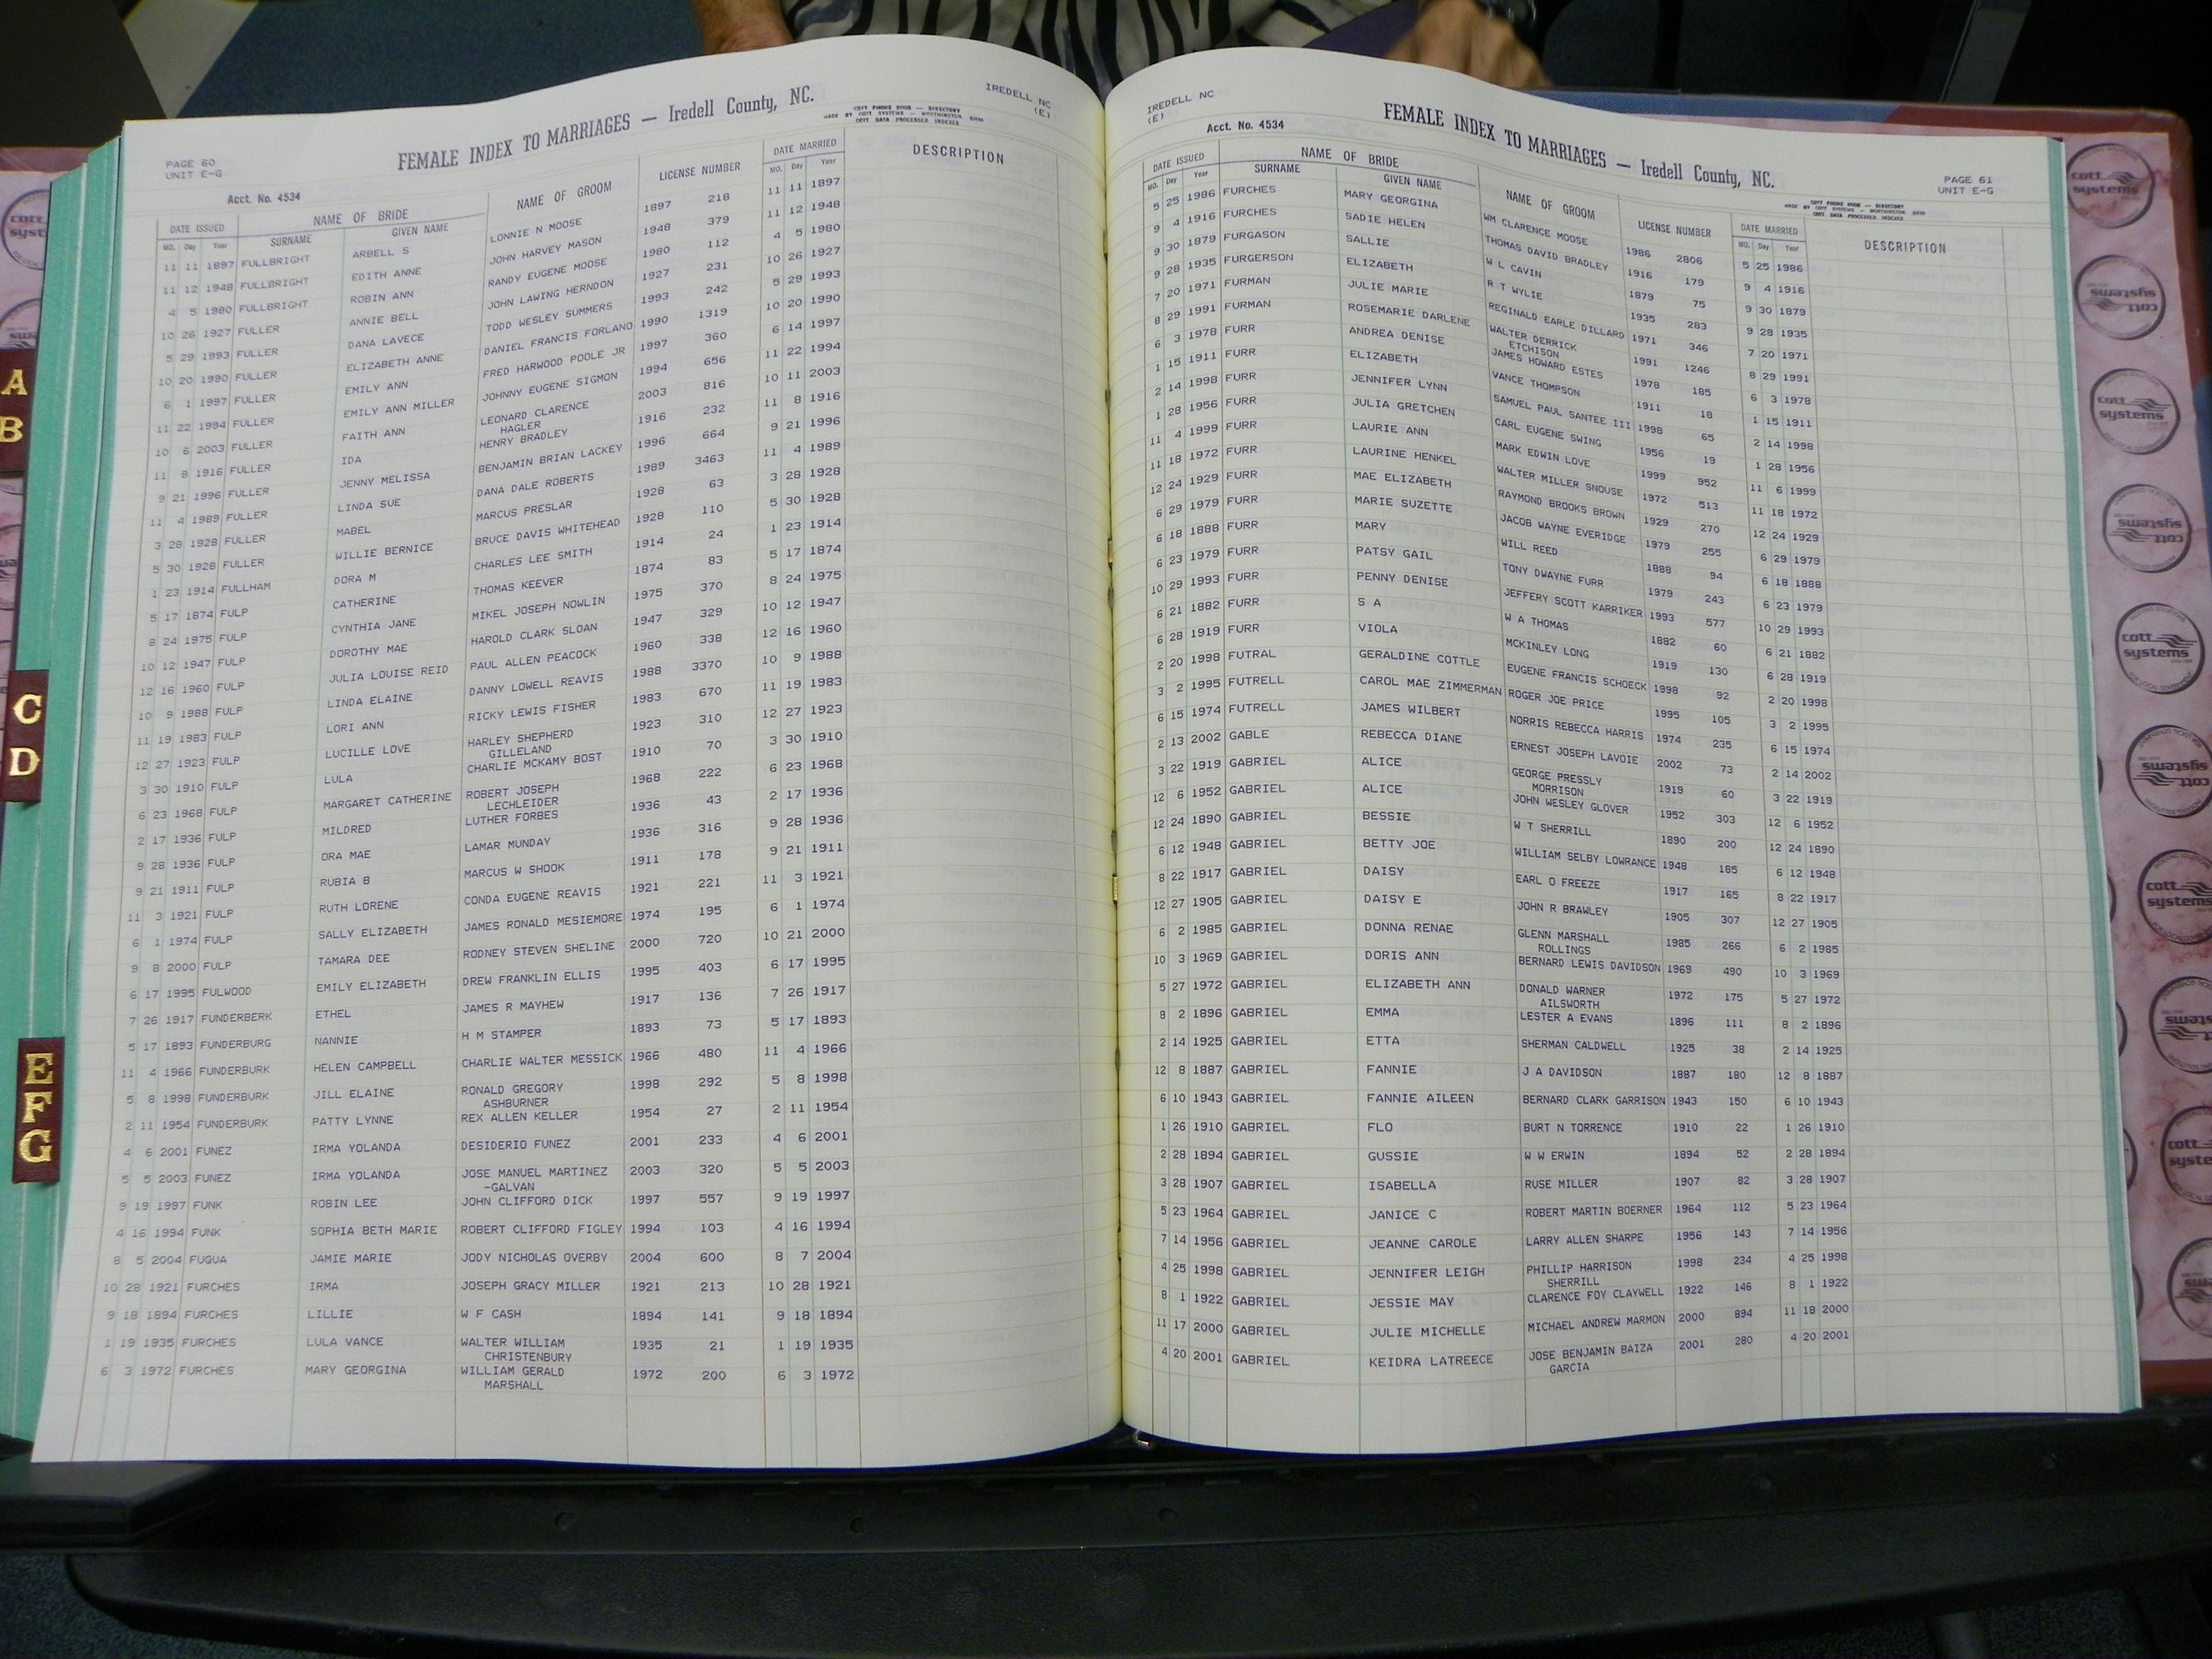 IREDELL NC
(E)
PAGE 60
UNIT E-G
FEMALE INDEX TO MARRIAGES — Iredell County, NC.
COTT PHONE BOOK — DIRECTORY
MADE BY COTT SYSTEMS — WORTHINGTON, OHIO
COTT DATA PROCESSED INDEXES
Acct. No. 4534
DATE ISSUED NAME OF BRIDE NAME OF GROOM LICENSE NUMBER DATE MARRIED DESCRIPTION
MO. Day Year SURNAME GIVEN NAME MO. Day Year
11 11 1897 FULLBRIGHT ARBELL S LONNIE N MOOSE 1897 218 11 11 1897
11 12 1948 FULLBRIGHT EDITH ANNE JOHN HARVEY MASON 1948 379 11 12 1948
4 5 1980 FULLBRIGHT ROBIN ANN RANDY EUGENE MOOSE 1980 112 4 5 1980
10 26 1927 FULLER ANNIE BELL JOHN LAWING HERNDON 1927 231 10 26 1927
5 29 1993 FULLER DANA LAVECE TODD WESLEY SUMMERS 1993 242 5 29 1993
10 20 1990 FULLER ELIZABETH ANNE DANIEL FRANCIS FORLANO 1990 1319 10 20 1990
6 1 1997 FULLER EMILY ANN FRED HARWOOD POOLE JR 1997 360 6 14 1997
11 22 1994 FULLER EMILY ANN MILLER JOHNNY EUGENE SIGMON 1994 656 11 22 1994
10 6 2003 FULLER FAITH ANN LEONARD CLARENCE 2003 816 10 11 2003
HAGLER
11 8 1916 FULLER IDA HENRY BRADLEY 1916 232 11 8 1916
9 21 1996 FULLER JENNY MELISSA BENJAMIN BRIAN LACKEY 1996 664 9 21 1996
11 4 1989 FULLER LINDA SUE DANA DALE ROBERTS 1989 3463 11 4 1989
3 28 1928 FULLER MABEL MARCUS PRESLAR 1928 63 3 28 1928
5 30 1928 FULLER WILLIE BERNICE BRUCE DAVIS WHITEHEAD 1928 110 5 30 1928
1 23 1914 FULLHAM DORA M CHARLES LEE SMITH 1914 24 1 23 1914
5 17 1874 FULP CATHERINE THOMAS KEEVER 1874 83 5 17 1874
8 24 1975 FULP CYNTHIA JANE MIKEL JOSEPH NOWLIN 1975 370 8 24 1975
10 12 1947 FULP DOROTHY MAE HAROLD CLARK SLOAN 1947 329 10 12 1947
12 16 1960 FULP JULIA LOUISE REID PAUL ALLEN PEACOCK 1960 338 12 16 1960
10 9 1988 FULP LINDA ELAINE DANNY LOWELL REAVIS 1988 3370 10 9 1988
11 19 1983 FULP LORI ANN RICKY LEWIS FISHER 1983 670 11 19 1983
12 27 1923 FULP LUCILLE LOVE HARLEY SHEPHERD 1923 310 12 27 1923
GILLELAND
3 30 1910 FULP LULA CHARLIE MCKAMY BOST 1910 70 3 30 1910
6 23 1968 FULP MARGARET CATHERINE ROBERT JOSEPH 1968 222 6 23 1968
LECHLEIDER
2 17 1936 FULP MILDRED LUTHER FORBES 1936 43 2 17 1936
9 28 1936 FULP ORA MAE LAMAR MUNDAY 1936 316 9 28 1936
9 21 1911 FULP RUBIA B MARCUS W SHOOK 1911 178 9 21 1911
11 3 1921 FULP RUTH LORENE CONDA EUGENE REAVIS 1921 221 11 3 1921
6 1 1974 FULP SALLY ELIZABETH JAMES RONALD MESIEMORE 1974 195 6 1 1974
9 8 2000 FULP TAMARA DEE RODNEY STEVEN SHELINE 2000 720 10 21 2000
6 17 1995 FULWOOD EMILY ELIZABETH DREW FRANKLIN ELLIS 1995 403 6 17 1995
7 26 1917 FUNDERBERK ETHEL JAMES R MAYHEW 1917 136 7 26 1917
5 17 1893 FUNDERBURG NANNIE H M STAMPER 1893 73 5 17 1893
11 4 1966 FUNDERBURK HELEN CAMPBELL CHARLIE WALTER MESSICK 1966 480 11 4 1966
5 8 1998 FUNDERBURK JILL ELAINE RONALD GREGORY 1998 292 5 8 1998
ASHBURNER
2 11 1954 FUNDERBURK PATTY LYNNE REX ALLEN KELLER 1954 27 2 11 1954
4 6 2001 FUNEZ IRMA YOLANDA DESIDERIO FUNEZ 2001 233 4 6 2001
5 5 2003 FUNEZ IRMA YOLANDA JOSE MANUEL MARTINEZ 2003 320 5 5 2003
-GALVAN
9 19 1997 FUNK ROBIN LEE JOHN CLIFFORD DICK 1997 557 9 19 1997
4 16 1994 FUNK SOPHIA BETH MARIE ROBERT CLIFFORD FIGLEY 1994 103 4 16 1994
8 5 2004 FUQUA JAMIE MARIE JODY NICHOLAS OVERBY 2004 600 8 7 2004
10 28 1921 FURCHES IRMA JOSEPH GRACY MILLER 1921 213 10 28 1921
9 18 1894 FURCHES LILLIE W F CASH 1894 141 9 18 1894
1 19 1935 FURCHES LULA VANCE WALTER WILLIAM 1935 21 1 19 1935
CHRISTENBURY
6 3 1972 FURCHES MARY GEORGINA WILLIAM GERALD 1972 200 6 3 1972
MARSHALL
IREDELL NC
(E)
Acct. No. 4534
FEMALE INDEX TO MARRIAGES — Iredell County, NC.
PAGE 61
UNIT E-G
COTT PHONE BOOK — DIRECTORY
MADE BY COTT SYSTEMS — WORTHINGTON, OHIO
COTT DATA PROCESSED INDEXES
DATE ISSUED NAME OF BRIDE NAME OF GROOM LICENSE NUMBER DATE MARRIED DESCRIPTION
MO. Day Year SURNAME GIVEN NAME MO. Day Year
5 25 1986 FURCHES MARY GEORGINA WM CLARENCE MOOSE 1986 2806 5 25 1986
9 4 1916 FURCHES SADIE HELEN THOMAS DAVID BRADLEY 1916 179 9 4 1916
9 30 1879 FURGASON SALLIE W L CAVIN 1879 75 9 30 1879
9 28 1935 FURGERSON ELIZABETH R T WYLIE 1935 283 9 28 1935
7 20 1971 FURMAN JULIE MARIE REGINALD EARLE DILLARD 1971 346 7 20 1971
8 29 1991 FURMAN ROSEMARIE DARLENE WALTER DERRICK 1991 1246 8 29 1991
ETCHISON
6 3 1978 FURR ANDREA DENISE JAMES HOWARD ESTES 1978 185 6 3 1978
1 15 1911 FURR ELIZABETH VANCE THOMPSON 1911 18 1 15 1911
2 14 1998 FURR JENNIFER LYNN SAMUEL PAUL SANTEE III 1998 65 2 14 1998
1 28 1956 FURR JULIA GRETCHEN CARL EUGENE SWING 1956 19 1 28 1956
11 4 1999 FURR LAURIE ANN MARK EDWIN LOVE 1999 952 11 6 1999
11 18 1972 FURR LAURINE HENKEL WALTER MILLER SNOUSE 1972 513 11 18 1972
12 24 1929 FURR MAE ELIZABETH RAYMOND BROOKS BROWN 1929 270 12 24 1929
6 29 1979 FURR MARIE SUZETTE JACOB WAYNE EVERIDGE 1979 255 6 29 1979
6 18 1888 FURR MARY WILL REED 1888 94 6 18 1888
6 23 1979 FURR PATSY GAIL TONY DWAYNE FURR 1979 243 6 23 1979
10 29 1993 FURR PENNY DENISE JEFFERY SCOTT KARRIKER 1993 577 10 29 1993
6 21 1882 FURR S A W A THOMAS 1882 60 6 21 1882
6 28 1919 FURR VIOLA MCKINLEY LONG 1919 130 6 28 1919
2 20 1998 FUTRAL GERALDINE COTTLE EUGENE FRANCIS SCHOECK 1998 92 2 20 1998
3 2 1995 FUTRELL CAROL MAE ZIMMERMAN ROGER JOE PRICE 1995 105 3 2 1995
6 15 1974 FUTRELL JAMES WILBERT NORRIS REBECCA HARRIS 1974 235 6 15 1974
2 13 2002 GABLE REBECCA DIANE ERNEST JOSEPH LAVOIE 2002 73 2 14 2002
3 22 1919 GABRIEL ALICE GEORGE PRESSLY 1919 60 3 22 1919
MORRISON
12 6 1952 GABRIEL ALICE JOHN WESLEY GLOVER 1952 303 12 6 1952
12 24 1890 GABRIEL BESSIE W T SHERRILL 1890 200 12 24 1890
6 12 1948 GABRIEL BETTY JOE WILLIAM SELBY LOWRANCE 1948 185 6 12 1948
8 22 1917 GABRIEL DAISY EARL O FREEZE 1917 165 8 22 1917
12 27 1905 GABRIEL DAISY E JOHN R BRAWLEY 1905 307 12 27 1905
6 2 1985 GABRIEL DONNA RENAE GLENN MARSHALL 1985 266 6 2 1985
ROLLINGS
10 3 1969 GABRIEL DORIS ANN BERNARD LEWIS DAVIDSON 1969 490 10 3 1969
5 27 1972 GABRIEL ELIZABETH ANN DONALD WARNER 1972 175 5 27 1972
AILSWORTH
8 2 1896 GABRIEL EMMA LESTER A EVANS 1896 111 8 2 1896
2 14 1925 GABRIEL ETTA SHERMAN CALDWELL 1925 38 2 14 1925
12 8 1887 GABRIEL FANNIE J A DAVIDSON 1887 180 12 8 1887
6 10 1943 GABRIEL FANNIE AILEEN BERNARD CLARK GARRISON 1943 150 6 10 1943
1 26 1910 GABRIEL FLO BURT N TORRENCE 1910 22 1 26 1910
2 28 1894 GABRIEL GUSSIE W W ERWIN 1894 52 2 28 1894
3 28 1907 GABRIEL ISABELLA RUSE MILLER 1907 82 3 28 1907
5 23 1964 GABRIEL JANICE C ROBERT MARTIN BOERNER 1964 112 5 23 1964
7 14 1956 GABRIEL JEANNE CAROLE LARRY ALLEN SHARPE 1956 143 7 14 1956
4 25 1998 GABRIEL JENNIFER LEIGH PHILLIP HARRISON 1998 234 4 25 1998
SHERRILL
8 1 1922 GABRIEL JESSIE MAY CLARENCE FOY CLAYWELL 1922 146 8 1 1922
11 17 2000 GABRIEL JULIE MICHELLE MICHAEL ANDREW MARMON 2000 894 11 18 2000
4 20 2001 GABRIEL KEIDRA LATREECE JOSE BENJAMIN BAIZA 2001 280 4 20 2001
GARCIA
A
B
C
D
E
F
G
cott
systems
cott
systems
cott
systems
cott
systems